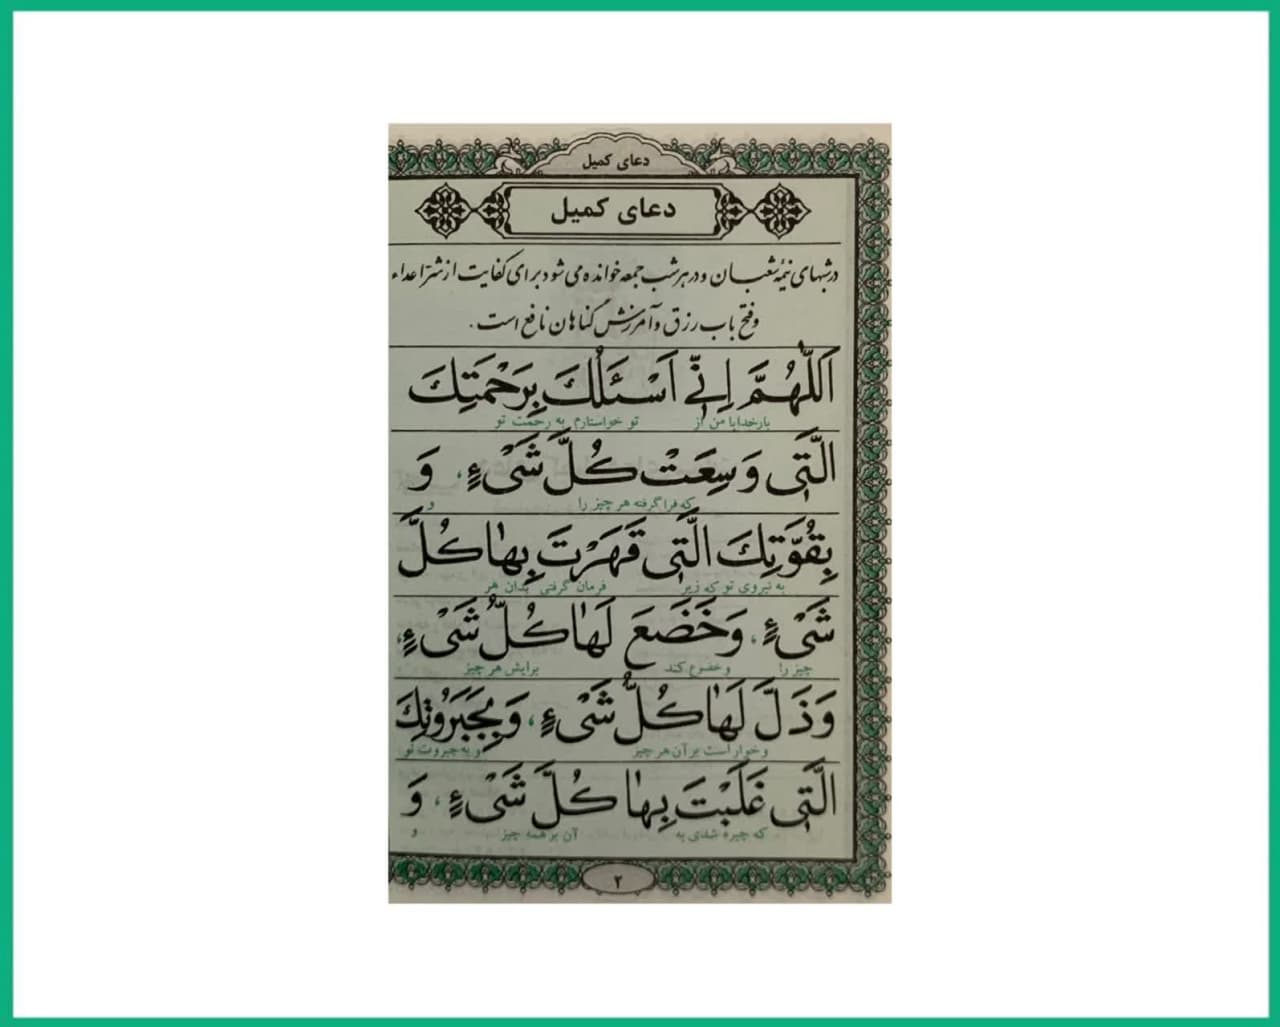 دعای کمیل
دعای کمیل
درشبهای نیمه شعبان و در هر شب جمعه خوانده می شود برای کفایت از شر اعداء
و فتح باب رزق و آمرزش گناهان نافع است.
اَللّٰهُمَّ اِنّي اَسْئَلُكَ بِرَحْمَتِكَ
بارخدایا من از تو خواستارم به رحمت تو
الَّتي وَسِعَتْ كُلَّ شَيْءٍ، وَ
که فرا گرفته هر چیز را و
بِقُوَّتِكَ الَّتي قَهَرْتَ بِهٰا كُلَّ
به نیروی تو که زیر فرمان گرفتی بدان هر
شَيْءٍ، وَخَضَعَ لَهٰا كُلُّ شَيْءٍ،
چیز را و خضوع کند برایش هر چیز
وَذَلَّ لَهٰا كُلُّ شَيْءٍ، وَبِجَبَرُوتِكَ
و خوار است بر آن هر چیز و به جبروت تو
الَّتي غَلَبْتَ بِهٰا كُلَّ شَيْءٍ، وَ
که چیره شدی به آن بر همه چیز و
۲